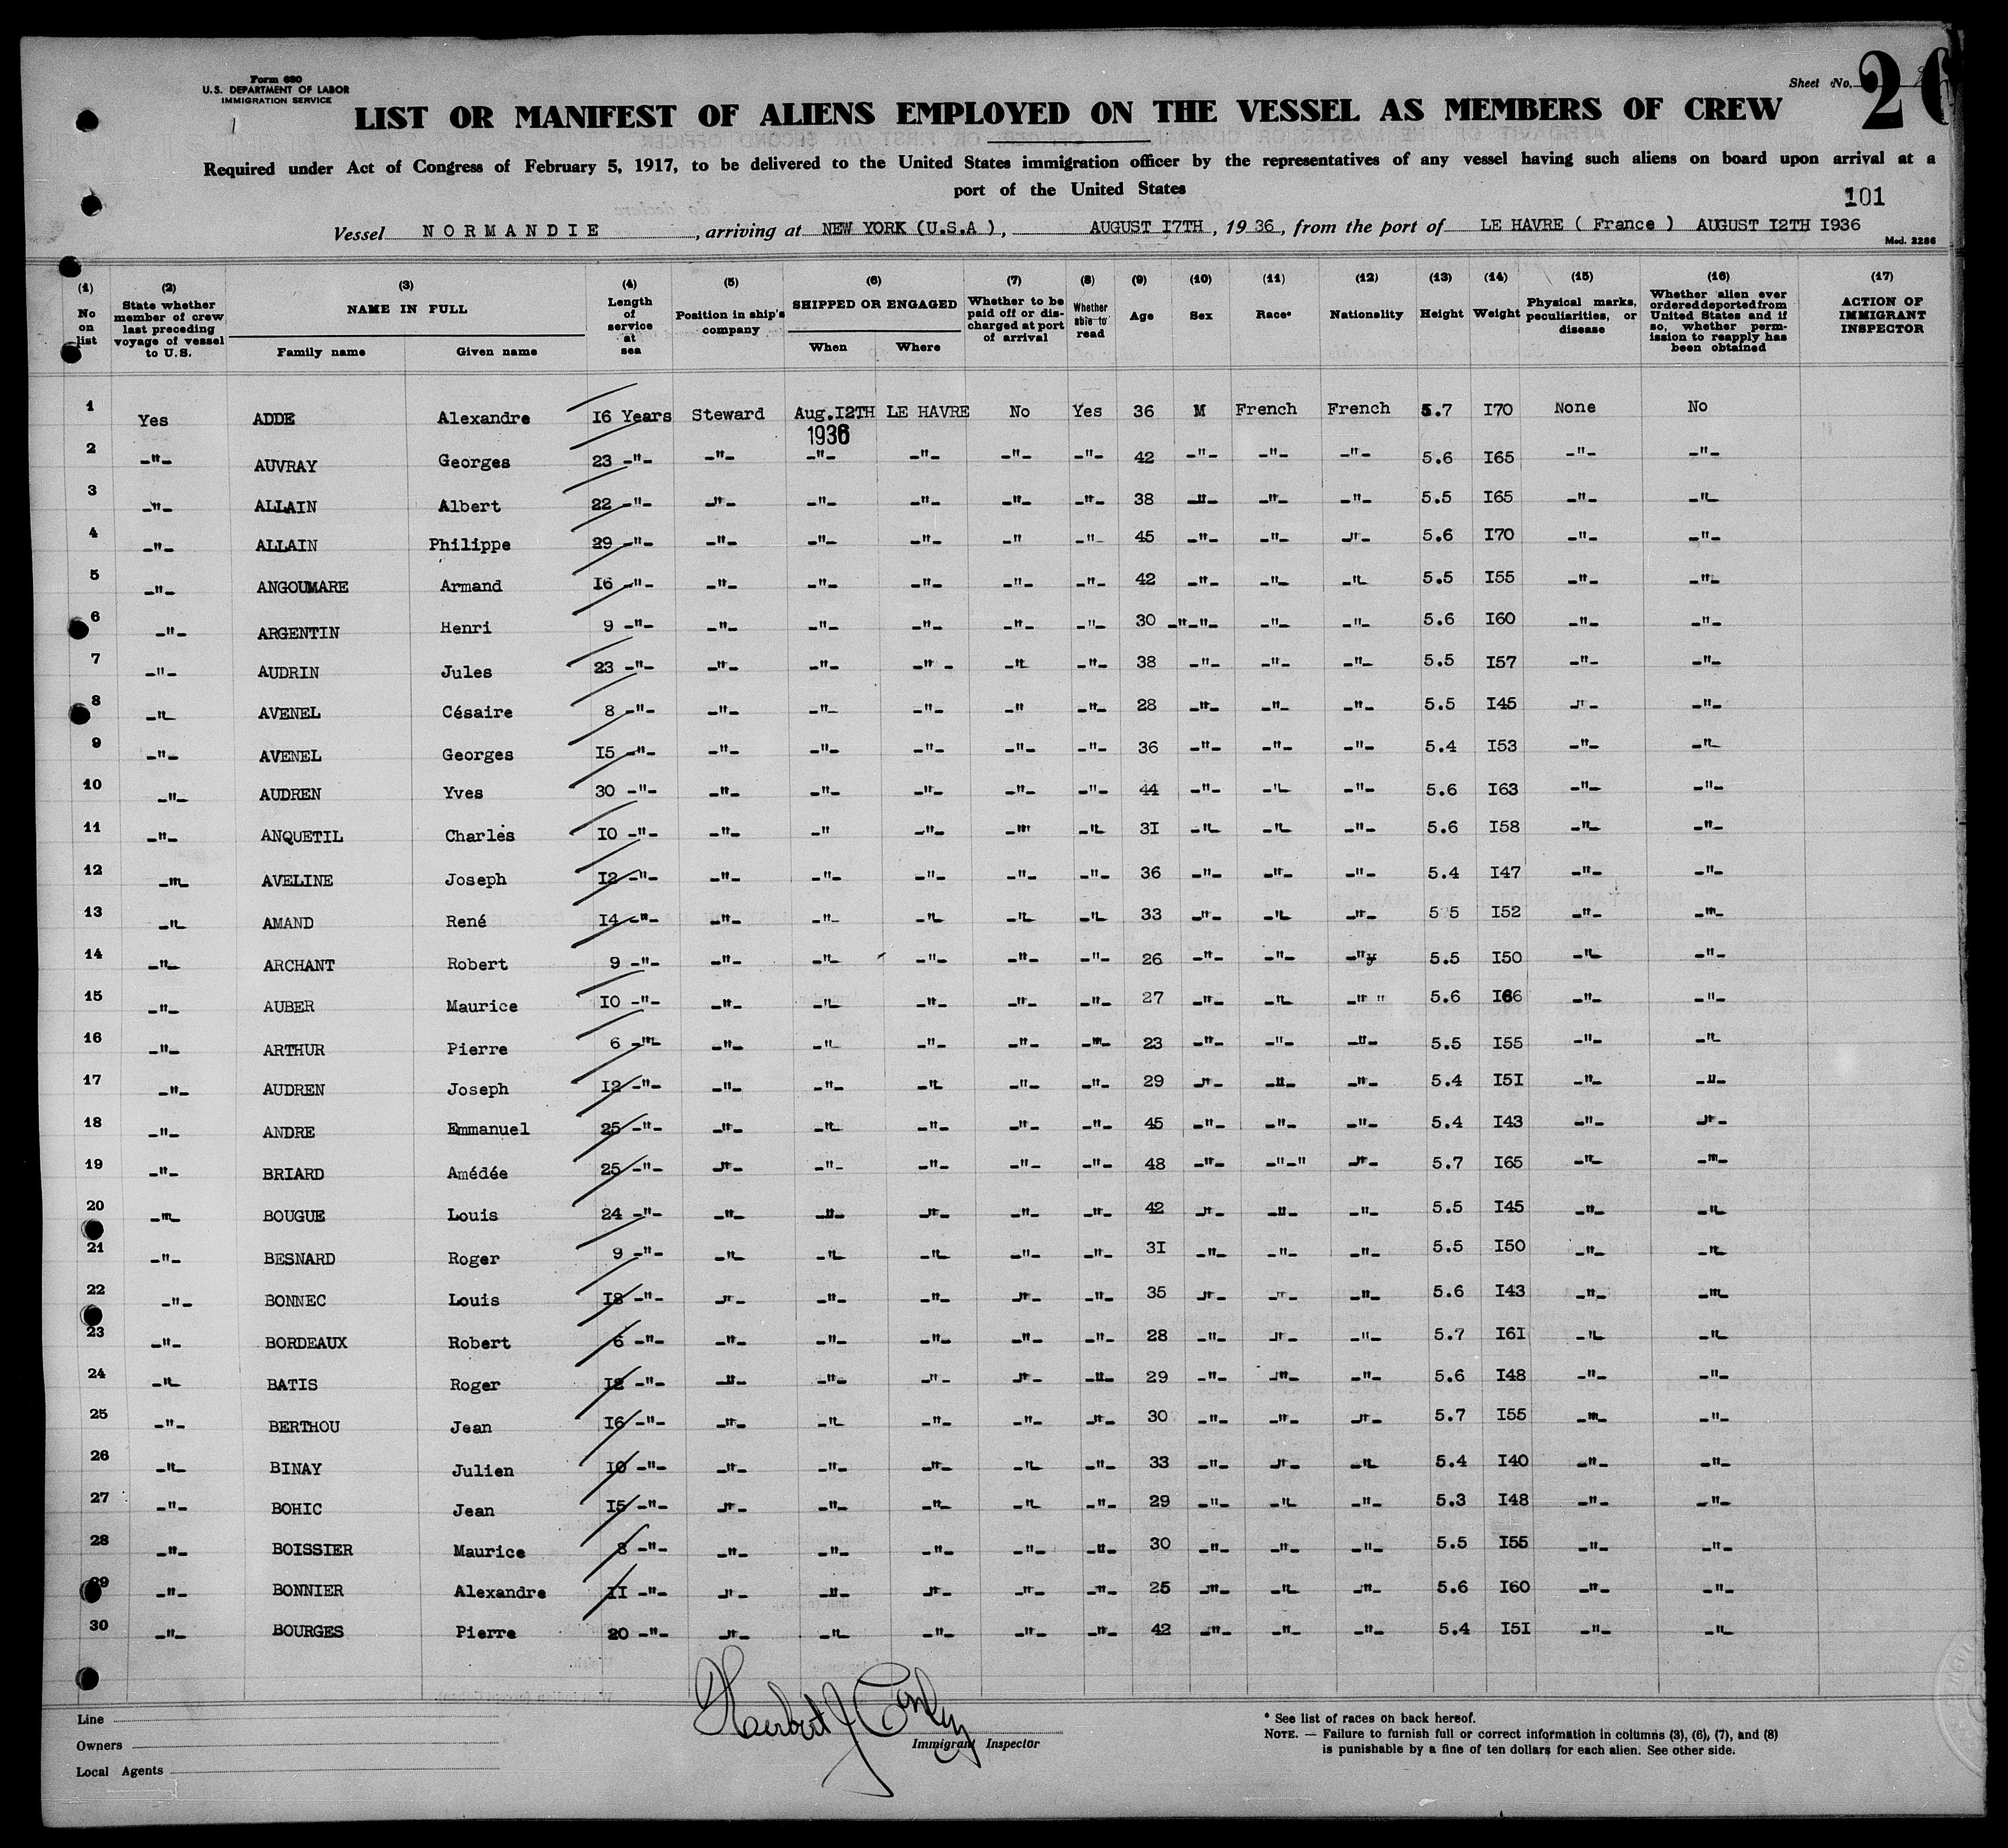 Form 680
U.S. DEPARTMENT OF LABOR
IMMIGRATION SERVICE
Sheet No. 26
LIST OR MANIFEST OF ALIENS EMPLOYED ON THE VESSEL AS MEMBERS OF CREW
Required under Act of Congress of February 5, 1917, to be delivered to the United States immigration officer by the representatives of any vessel having such aliens on board upon arrival at a
port of the United States
101
Vessel NORMANDIE, arriving at NEW YORK (U.S.A ), AUGUST I7TH, 1936, from the port of LE HAVRE ( France ) AUGUST I2TH I936
Mod. 2286
(1) No on list (2) State whether member of crew last preceding voyage of vessel to U.S. (3) NAME IN FULL Family name Given name (4) Length of service at sea (5) Position in ship's company (6) SHIPPED OR ENGAGED When Where (7) Whether to be paid off or discharged at port of arrival (8) Whether able to read (9) Age (10) Sex (11) Race* (12) Nationality (13) Height (14) Weight (15) Physical marks, peculiarities, or disease (16) Whether alien ever ordered deported from United States and if so, whether permission to reapply has been obtained (17) ACTION OF IMMIGRANT INSPECTOR
1 Yes ADDE Alexandre I6 Years Steward Aug.I2TH 1936 LE HAVRE No Yes 36 M French French 5.7 I70 None No
2 -"- AUVRAY Georges 23 -"- -"- -"- -"- -"- -"- 42 -"- -"- -"- 5.6 I65 -"- -"-
3 -"- ALLAIN Albert 22 -"- -"- -"- -"- -"- -"- 38 -"- -"- -"- 5.5 I65 -"- -"-
4 -"- ALLAIN Philippe 29 -"- -"- -"- -"- -" -"- 45 -"- -"- -"- 5.6 I70 -"- -"-
5 -"- ANGOUMARE Armand I6 -"- -"- -"- -"- -"- -"- 42 -"- -"- -"- 5.5 I55 -"- -"-
6 -"- ARGENTIN Henri 9 -"- -"- -"- -"- -"- -"- 30 -"-"- -"- -"- 5.6 I60 -"- -"-
7 -"- AUDRIN Jules 23 -"- -"- -"- -"- -"- -"- 38 -"- -"- -"- 5.5 I57 -"- -"-
8 -"- AVENEL Césaire 8 -"- -"- -"- -"- -" -"- 28 -"- -"- -"- 5.5 I45 -"- -"-
9 -"- AVENEL Georges I5 -"- -"- -"- -"- -"- -"- 36 -"- -"- -"- 5.4 I53 -"- -"-
10 -"- AUDREN Yves 30 -"- -"- -"- -"- -"- -"- 44 -"- -"- -"- 5.6 I63 -"- -"-
11 -"- ANQUETIL Charles I0 -"- -"- -" -"- -"- -"- 3I -"- -"- -"- 5.6 I58 -"- -"-
12 -"- AVELINE Joseph I2 -"- -"- -"- -"- -"- -"- 36 -"- -"- -"- 5.4 I47 -"- -"-
13 -"- AMAND René I4 -"- -"- -"- -"- -"- -"- 33 -"- -"- -"- 5 5 I52 -"- -"-
14 -"- ARCHANT Robert 9 -"- -"- -"- -"- -"- -"- 26 -"- -"- -"y 5.5 I50 -"- -"-
15 -"- AUBER Maurice I0 -"- -"- -"- -"- -"- -"- 27 -"- -"- -"- " 5.6 I66 -"- -"-
16 -"- ARTHUR Pierre 6 -"- -"- -"- -"- -"- -"- 23 -"- -"- -"- 5.5 I55 -"- -"-
17 -"- AUDREN Joseph I2 -"- -"- -"- -"- -"- -"- 29 -"- -"- -"- 5.4 I5I -"- -"-
18 -"- ANDRE Emmanuel 25 -"- -"- -"- -"- -"- -"- 45 -"- -"- -"- 5.4 I43 -"- -"-
19 -"- BRIARD Amédée 25 -"- -"- -"- -"- -"- -"- 48 -"- -"-" -"- 5.7 I65 -"- -"-
20 -"- BOUGUE Louis 24 -"- -"- -"- -"- -"- -"- 42 -"- -"- -"- 5.5 I45 -"- -"-
21 -"- BESNARD Roger 9 -"- -"- -"- -"- -"- -"- 3I -"- -"- -"- 5.5 I50 -"- -"-
22 -"- BONNEC Louis I8 -"- -"- -"- -"- -"- -"- 35 -"- -"- -"- 5.6 I43 -"- -"-
23 -"- BORDEAUX Robert 6 -"- -"- -"- -"- -"- -"- 28 -"- -"- -"- 5.7 I6I -"- -"-
24 -"- BATIS Roger I2 -"- -"- -"- -"- -"- -"- 29 -"- -"- -"- 5.6 I48 -"- -"-
25 -"- BERTHOU Jean I6 -"- -"- -"- -"- -"- -"- 30 -"- -"- -"- 5.7 I55 -"- -"-
26 -"- BINAY Julien I0 -"- -"- -"- -"- -"- -"- 33 -"- -"- -"- 5.4 I40 -"- -"-
27 -"- BOHIC Jean I5 -"- -"- -"- -"- -"- -"- 29 -"- -"- -"- 5.3 I48 -"- -"-
28 -"- BOISSIER Maurice 8 -"- -"- -"- -"- -"- -"- 30 -"- -"- -"- 5.5 I55 -"- -"-
29 -"- BONNIER Alexandre II -"- -"- -"- -"- -"- -"- 25 -"- -"- -"- 5.6 I60 -"- -"-
30 -"- BOURGES Pierre 20 -"- -"- -"- -"- -"- -"- 42 -"- -"- -"- 5.4 I5I -"- -"-
Herbert J Conly
Immigrant Inspector
Line
Owners
Local Agents
* See list of races on back hereof.
NOTE. — Failure to furnish full or correct information in columns (3), (6), (7), and (8)
is punishable by a fine of ten dollars for each alien. See other side.